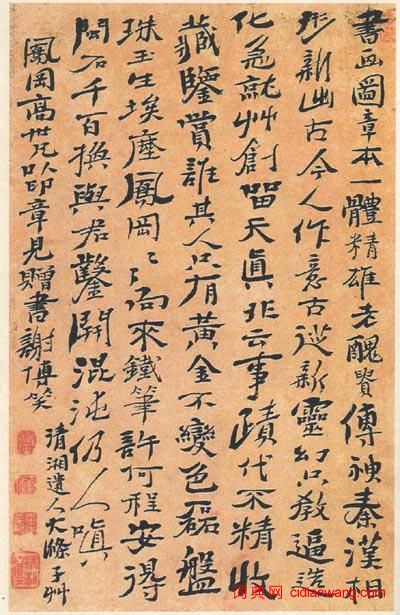 書画圖章本一體精雄老醜貴傳神秦漢相
形新出古今人作意古從新靈幻只教逼造
化急就艸創留天真非云事蹟代不精收
藏鑒賞誰其人只有黃金不變色磊盤
珠玉生埃塵鳳岡〻向來鐵筆許何程安得
閒石千百換與君鑿開混沌仍人嗔
鳳岡高世兄以印章見贈書謝博笑
清湘遺人大滌子艸
词典网 cidianwang.com